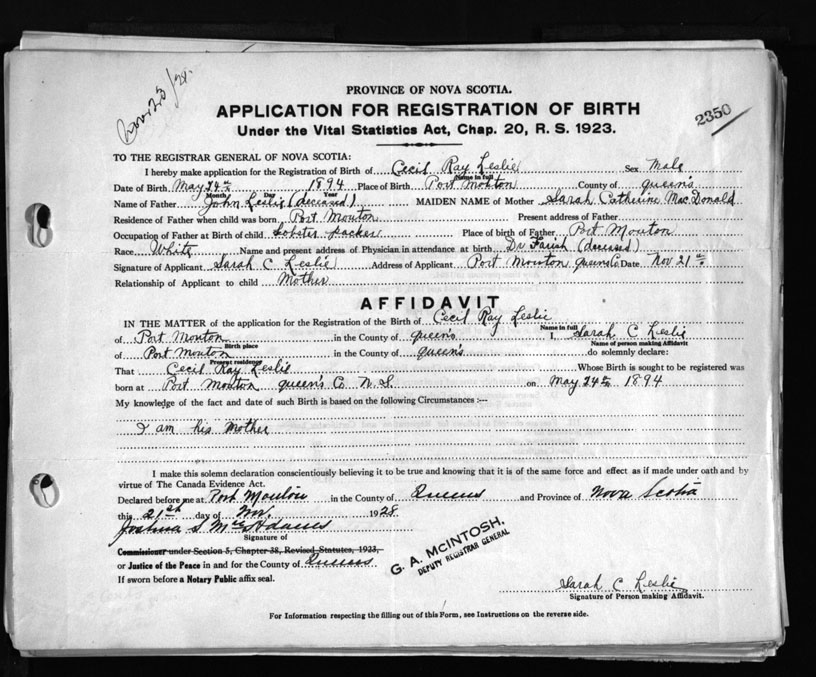 Nov 23/28.
2350
PROVINCE OF NOVA SCOTIA.
APPLICATION FOR REGISTRATION OF BIRTH
Under the Vital Statistics Act, Chap. 20, R. S. 1923.
TO THE REGISTRAR GENERAL OF NOVA SCOTIA:
I hereby make application for the Registration of Birth of Cecil Ray Leslie Sex Male
Name in full
Date of Birth May 24th 1894 Place of Birth Port Mouton County of Queen's
Month Day Year
Name of Father John Leslie (deceased) MAIDEN NAME of Mother Sarah Catherine MacDonald
Residence of Father when child was born Port Mouton Present address of Father
Occupation of Father at Birth of child Lobster Packer Place of birth of Father Port Mouton
Race White Name and present address of Physician in attendance at birth Dr Farish (deceased)
Signature of Applicant Sarah C Leslie Address of Applicant Port Mouton Queens Co. Date Nov 21st
Relationship of Applicant to child Mother
AFFIDAVIT
IN THE MATTER of the application for the Registration of the Birth of Cecil Ray Leslie
Name in full
of Port Mouton in the County of Queen's I, Sarah C Leslie
Birth place Name of person making Affidavit
of Port Mouton in the County of Queen's do solemnly declare:
Present residence
That Cecil Ray Leslie Whose Birth is sought to be registered was
born at Port Mouton Queen's Co N. S. on May 24th 1894
My knowledge of the fact and date of such Birth is based on the following Circumstances :—
I am his Mother
I make this solemn declaration conscientiously believing it to be true and knowing that it is of the same force and effect as if made under oath and by
virtue of The Canada Evidence Act.
Declared before me at Port Mouton in the County of Queens and Province of Nova Scotia
this 21st day of Nov. 1928
Joshua S McAdams
Signature of
Commissioner under Section 5, Chapter 38, Revised Statutes, 1923,
or Justice of the Peace in and for the County of Queens
If sworn before a Notary Public affix seal.
G. A. McINTOSH,
DEPUTY REGISTRAR GENERAL
Sarah C Leslie
Signature of Person making Affidavit.
For Information respecting the filling out of this Form, see Instructions on the reverse side.